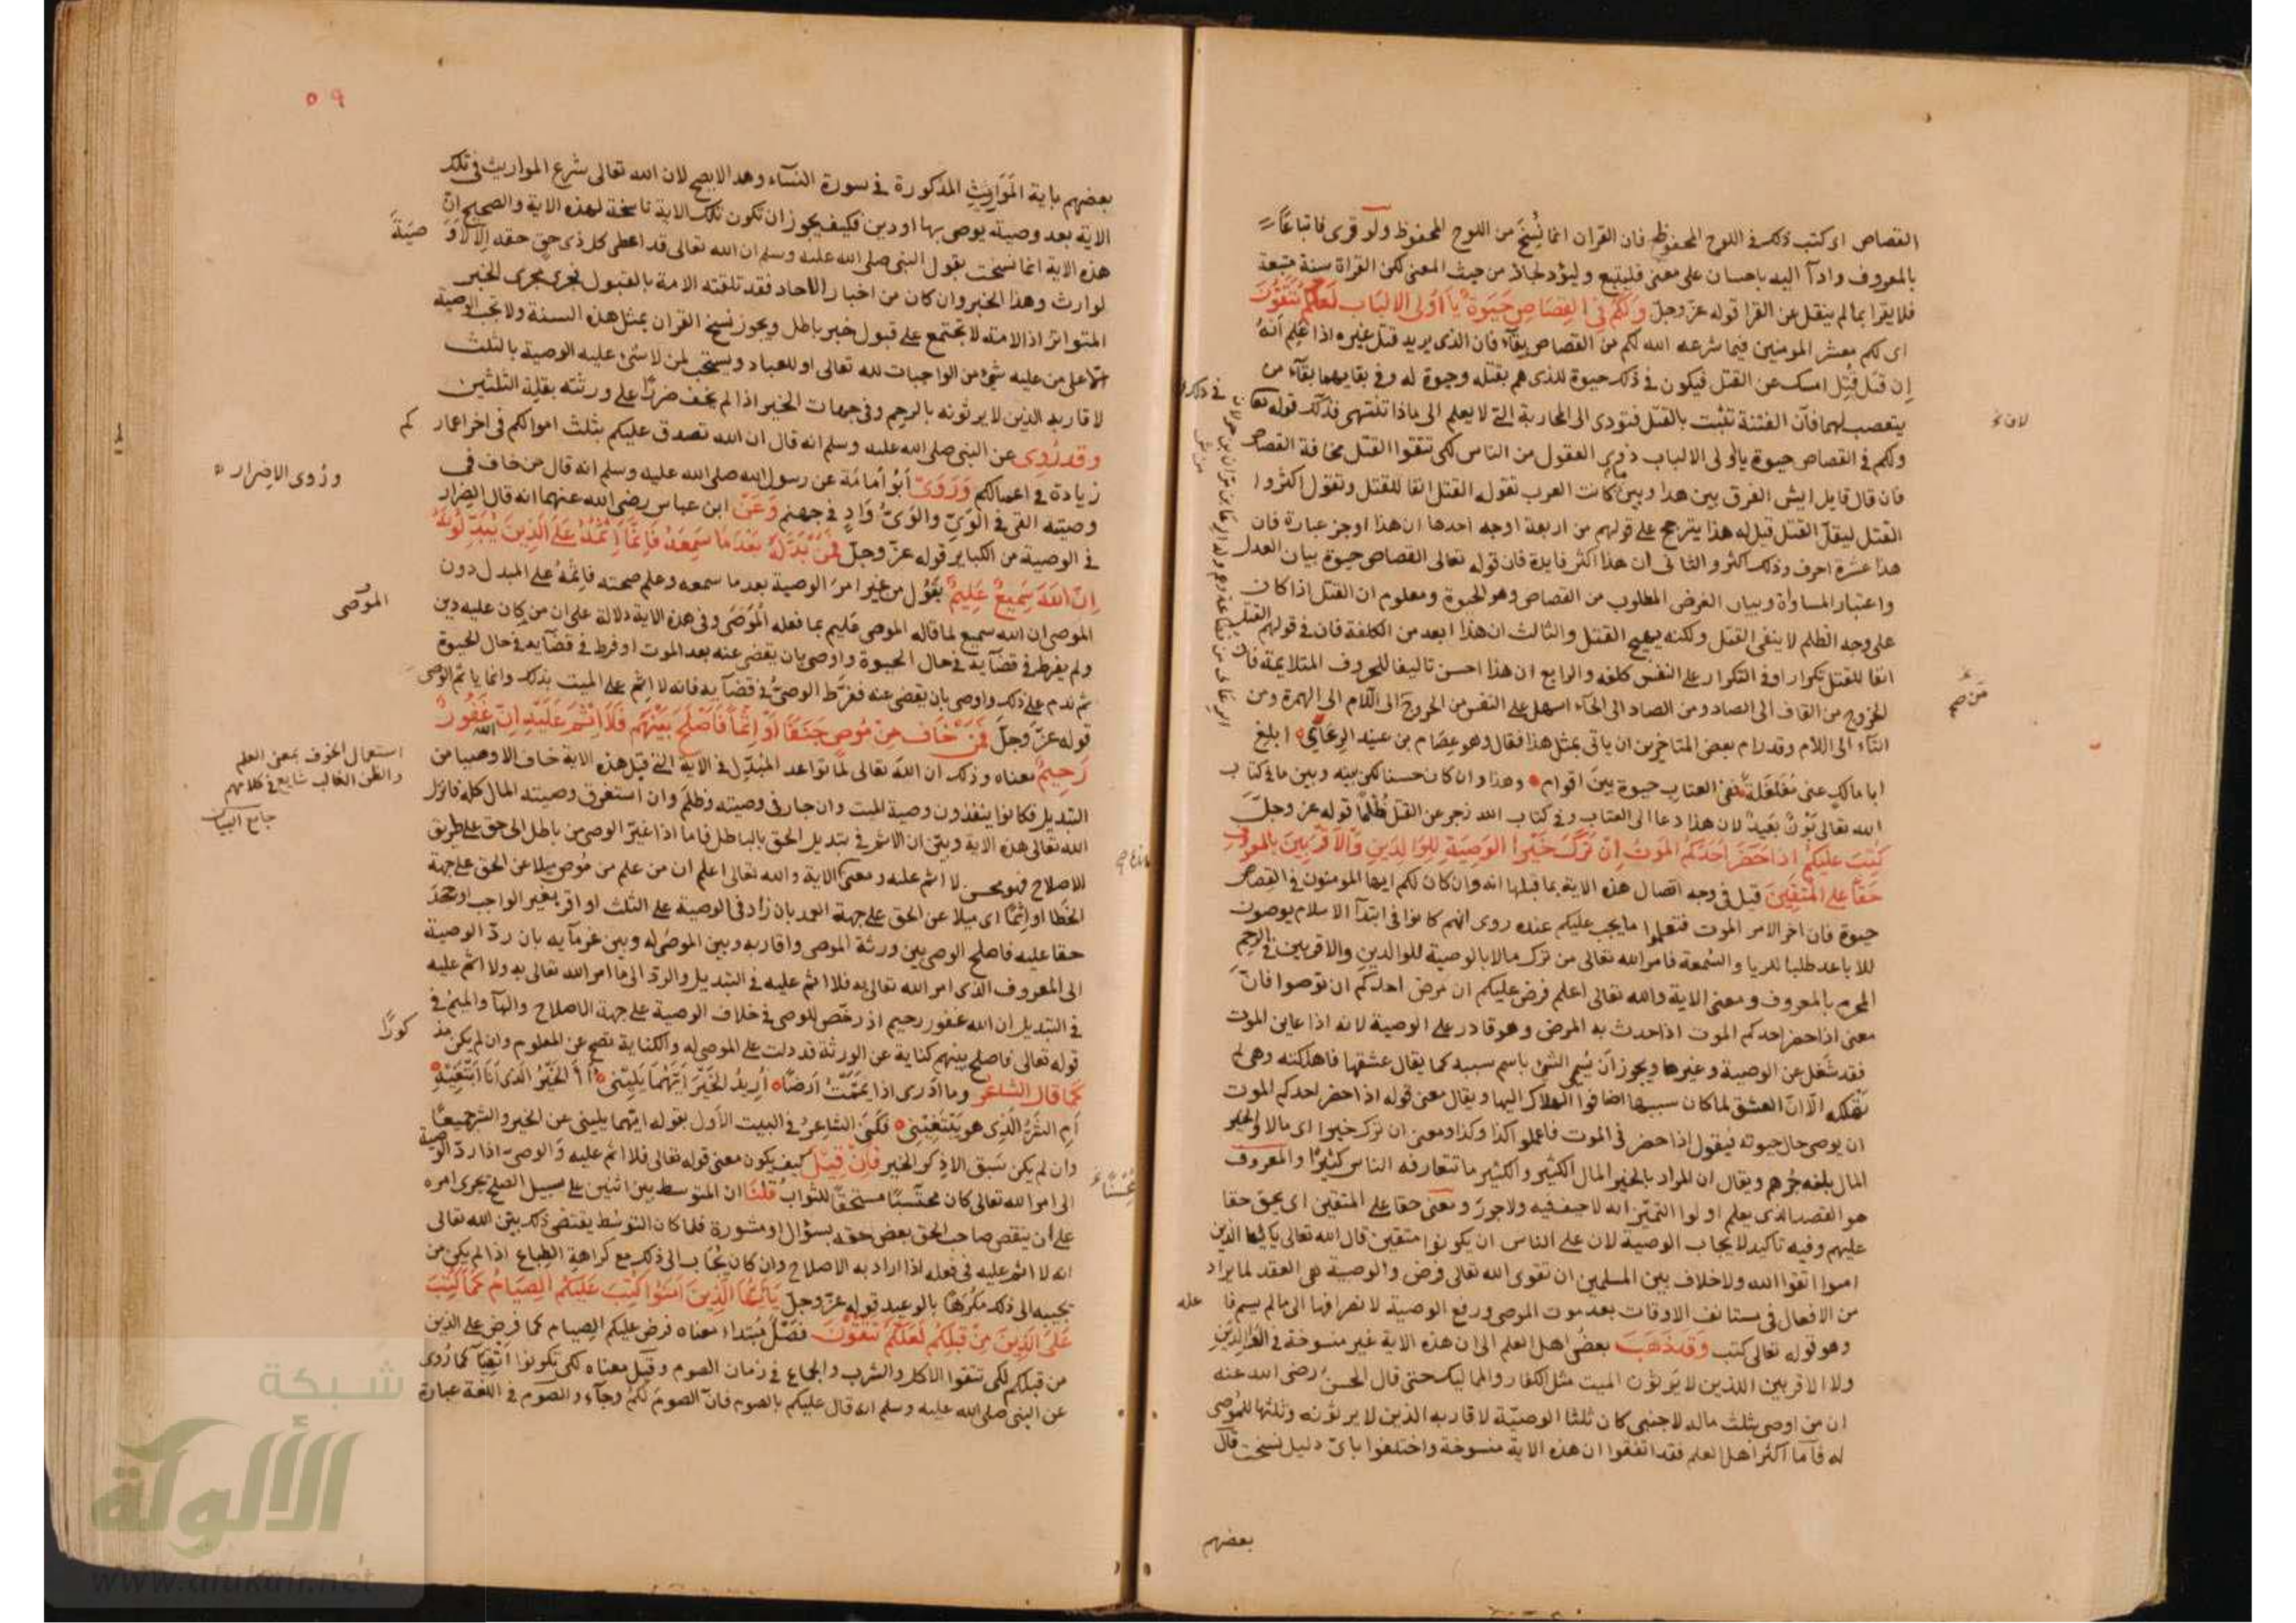 القصاص اى كتب ذلك في اللوح المحفوظ فان القران انما نُسِخَ من اللوح المحفوظ ولو قرى فاتباعًا
بالمعروف وادآ اليه باحسان على معنى فليتبع وليؤد لجاز من حيث المعنى لكن القراة سنة متبعة
فلا يقرا بما لم ينقل عن القرا قوله عز وجل ولكم في القصاص حيوة يا اولى الالباب لعلكم تتقون
اى لكم معشر المومنين فيما شرعه الله لكم من القصاص بقآء فان الذى يريد قتل غيره اذا علم انه
ان قتل قُتِل امسك عن القتل فيكون في ذلك حيوة للذى هم بقتله وحيوة له وفي بقايهما بقآء من
يتعصب لهما فان الفتنة تثبت بالقتل فتودى الى المحاربة التى لا يعلم الى ماذا تنتهى فذلك قوله تعالى
ولكم في القصاص حيوة يا اولى الالباب ذوى العقول من الناس لكى تتقوا القتل مخافة القصاص
فان قال قايل ايش الفرق بين هذا وبين ما كانت العرب تقوله القتل انفا للقتل وتقول اكثروا
القتل ليقل القتل قيل له هذا يترجح على قولهم من اربعة اوجه احدها ان هذا اوجز عبارة فان
هذا عشرة احرف وذلك اكثر والثانى ان هذا اكثر فايدة فان قوله تعالى القصاص حيوة بيان العدل
واعتبار المساواة وبيان الغرض المطلوب من القصاص وهو الحيوة ومعلوم ان القتل اذا كان
على وجه الظلم لا ينفى القتل ولكنه يهيج القتل والثالث ان هذا ابعد من الكلفة فان في قولهم القتل
انفا للقتل تكرار اوفى التكرار على النفس كلفه والرابع ان هذا احسن تاليفا للحروف المتلايمة فان
الخروج من القاف الى الصاد ومن الصاد الى الحآء اسهل على النفس من الخروج الى اللام الى الهمزة ومن
التآء الى اللام وقد رام بعض المتاخرين ان ياتى بمثل هذا فقال وهو عصام بن عبيد الزِمّانى ابلغ
ابا مالك عنى مغلغلة ففى العتاب حيوة بين اقوام وهذا وان كان حسنا لكن بينه وبين ما في كتاب
الله تعالى بَوْنٌ بَعِيدٌ لان هذا دعا الى العتاب وفي كتاب الله زجر عن القتل ظلما قوله عز وجل
كتب عليكم اذا حضر احدكم الموت ان ترك خيرا الوصية للوالدين والاقربين بالمعروف
حقا على المتقين قيل في وجه اتصال هذه الاية بما قبلها انه وان كان لكم ايها المومنون في القصاص
حيوة فان اخر الامر الموت فتعلموا ما يجب عليكم عنده روى انهم كانوا في ابتدآ الاسلام يوصون
للاباعد طلبا للريا والسمعة فامر الله تعالى من ترك مالا بالوصية للوالدين والاقربين في الرحم
المحرم بالمعروف ومعنى الاية والله تعالى اعلم فرض عليكم ان مرض احدكم ان توصوا فان
معنى اذا حضر احدكم الموت اذا حدث به المرض وهو قادر على الوصية لانه اذا عاين الموت
فقد شغل عن الوصية وغيرها ويجوز ان يُسمى الشئ باسم سببه كما يقال عشقها فاهلكته وهى لم
تهلكه الا ان العشق لما كان سببها اضافوا الهلاك اليها ويقال معنى قوله اذا حضر احدكم الموت
ان يوصى حال حيوته فيقول اذا حضر في الموت فاعملوا كذا وكذا ومعنى ان ترك خيرا اى مالا والخير
المال بلغه جرهم ويقال ان المراد بالخير المال الكثير والكثير ما تتعارفه الناس كثيرا والمعروف
هو القصد الذى يعلم اولوا التميز انه لا حيف فيه ولا جور ومعنى حقا على المتقين اى يحق حقا
عليهم وفيه تاكيد لايجاب الوصية لان على الناس ان يكونوا متقين قال الله تعالى يا ايها الذين
امنوا اتقوا الله ولا خلاف بين المسلمين ان تقوى الله تعالى فرض والوصية هى العقد لما يراد
من الافعال في مستانف الاوقات بعد موت الموصى ورفع الوصية لا نصرافها الى ما لم يسم فا عله
وهو قوله تعالى كتب وقد ذهب بعض اهل العلم الى ان هذه الاية غير منسوخة في الوالدين
ولا الاقربين اللذين لا يرثون الميت مثل الكفار والمماليك حتى قال الحسن رضى الله عنه
ان من اوصى بثلث ماله لاجنبى كان ثلثا الوصية لاقاربه الذين لا يرثونه وثلثها للموصى
له فاما اكثر اهل العلم فقد اتفقوا ان هذه الاية منسوخة واختلفوا باى دليل نسخت قال
بعضهم
٥٩
بعضهم باية المواريث المذكورة في سورة النسآء وهذا لا يصح لان الله تعالى شرع المواريث في تلك
الاية بعد وصية يوصى بها او دين فكيف يجوز ان تكون تلك الاية ناسخة لهذه الاية والصحيح ان
هذه الاية انما نسخت بقول النبى صلى الله عليه وسلم ان الله تعالى قد اعطى كل ذى حق حقه الا لا وَ صيَةَ
لوارث وهذا الخبر وان كان من اخبار الاحاد فقد تلقته الامة بالقبول فجرى مجرى الخبر
المتواتر اذ الامة لا تجتمع على قبول خبر باطل ويجوز نسخ القران بمثل هذه السنة ولا تجب الوصية
الا على من عليه شئ من الواجبات لله تعالى او للعباد ويستحب لمن لا شئ عليه الوصية بالثلث
لاقاربه الذين لا يرثونه بالرحم وفي جهات الخير اذا لم يخف ضررًا على ورثته بقلة الثلثين
وقد رُوى عن النبى صلى الله عليه وسلم انه قال ان الله تصدق عليكم بثلث اموالكم في اخر اعمار كم
زيادة في اعمالكم وَرَوَى ابُو اُمَامَة عن رسول الله صلى الله عليه وسلم انه قال من خاف في
وصيته القى في الوَىّ والوَىّ وَادٍ في جهنم وَعَنْ ابن عباس رضى الله عنهما انه قال الضرار
ورُوى الاضرار
في الوصية من الكباير قوله عز وجل فمن بدله بعد ما سمعه فانما اثمه على الذين يبدلونه
ان الله سميع عليم يقول من غير امر الوصية بعد ما سمعه وعلم صحته فاثمه على المبدل دون
الموصى ان الله سميع لما قاله الموصى عليم بما فعله المُوصَى وفي هذه الاية دلالة على ان من كان عليه دين
الموصى
ولم يفرط في قضآيه في حال الحيوة واوصى بان يقضى عنه بعد الموت او فرط في قضآيه في حال الحيوة
ثم ندم على ذلك واوصى بان يقضى عنه ففرط الوصىّ في قضآيه فانه لا اثم على الميت بذلك وانما ياثم الوصى
قوله عز وجل فمن خاف من موص جنفا او اثما فاصلح بينهم فلا اثم عليه ان الله غفور
رحيم معناه وذلك ان الله تعالى لما تواعد المُبَدِّل في الاية التى قبل هذه الاية خاف الاوصيا من
استعمال الخوف بمعنى العلم
والظن الغالب شايع في كلامهم
جامع البيان
التبديل فكانوا ينفذون وصية الميت وان جار في وصيته وظلم وان استغرق وصيته المال كله فانزل
الله تعالى هذه الاية وبيّن ان الاثم في تبديل الحق بالباطل فاما اذا غيّر الوصى من باطل الى حق على طريق
الاصلاح فهو محسن لا اثم عليه ومعنى الاية والله تعالى اعلم ان من علم من مُوصٍ ميلا عن الحق على جهة
الخطا او اثمًا اى ميلا عن الحق على جهة العمد بان زاد في الوصية على الثلث او اقر بغير الواجب او جحد
حقا عليه فاصلح الوصى بين ورثة الموصى واقاربه وبين الموصَى له وبين غرمآيه بان ردّ الوصية
الى المعروف الذى امر الله تعالى به فلا اثم عليه في التبديل والرد الى ما امر الله تعالى به ولا اثم عليه
في التبديل ان الله غفور رحيم اذ رخّص للوصى في خلاف الوصية على جهة الاصلاح والهآ والميم في
قوله تعالى فاصلح بينهم كناية عن الورثة قد دلت على الموصى له والكناية تصح عن المعلوم وان لم يكن مذ كورًا
كما قال الشاعر وما ادرى اذا يممت ارضا اريد الخير ايهما يلينى أ الخير الذى انا ابتغيه
ام الشر الذى هو يبتغينى فكنى الشاعر في البيت الاول بقوله ايهما يلينى عن الخير والشر جميعا
وان لم يكن سبق الا ذكر الخير فَاِنْ قِيْلَ كيف يكون معنى قوله تعالى فلا اثم عليه والوصى اذا ردّ الوصية
الى امر الله تعالى كان محتسبًا مستحقًا للثواب قلنا ان المتوسط بين اثنين على سبيل الصلح يجرى امره
على ان ينقص صاحب الحق بعض حقه بسؤال او مشورة فلما كان التوسط يقتضى ذلك بيّن الله تعالى
انه لا اثم عليه في فعله اذا اراد به الاصلاح وان كان يُجَاب الى ذلك مع كراهة الطباع اذا لم يكن من
يجيبه الى ذلك مُكْرَهًا بالوعيد قوله عز وجل يا ايها الذين امنوا كتب عليكم الصيام كما كتب
على الذين من قبلكم لعلكم تتقون فَصْلٌ مُبْتَدا معناه فرض عليكم الصيام كما فرض على الذين
من قبلكم لكى تتقوا الاكل والشرب والجماع في زمان الصوم وقيل معناه لكى تكونوا اتقيآ كما رُوى
عن النبى صلى الله عليه وسلم انه قال عليكم بالصوم فان الصوم لكم وجآء والصوم في اللغة عبارة
شبكة
الألوكة
www.alukah.net